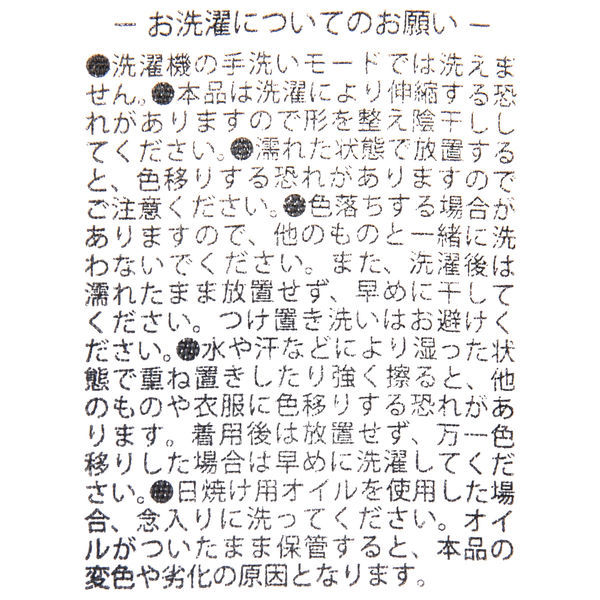 − お洗濯についてのお願い −
●洗濯機の手洗いモードでは洗えま
せん。●本品は洗濯により伸縮する恐
れがありますので形を整え陰干しし
てください。●濡れた状態で放置する
と、色移りする恐れがありますので
ご注意ください。●色落ちする場合が
ありますので、他のものと一緒に洗
わないでください。また、洗濯後は
濡れたまま放置せず、早めに干して
ください。つけ置き洗いはお避けく
ださい。●水や汗などにより湿った状
態で重ね置きしたり強く擦ると、他
のものや衣服に色移りする恐れがあ
ります。着用後は放置せず、万一色
移りした場合は早めに洗濯してくだ
さい。●日焼け用オイルを使用した場
合、念入りに洗ってください。オイ
ルがついたまま保管すると、本品の
変色や劣化の原因となります。